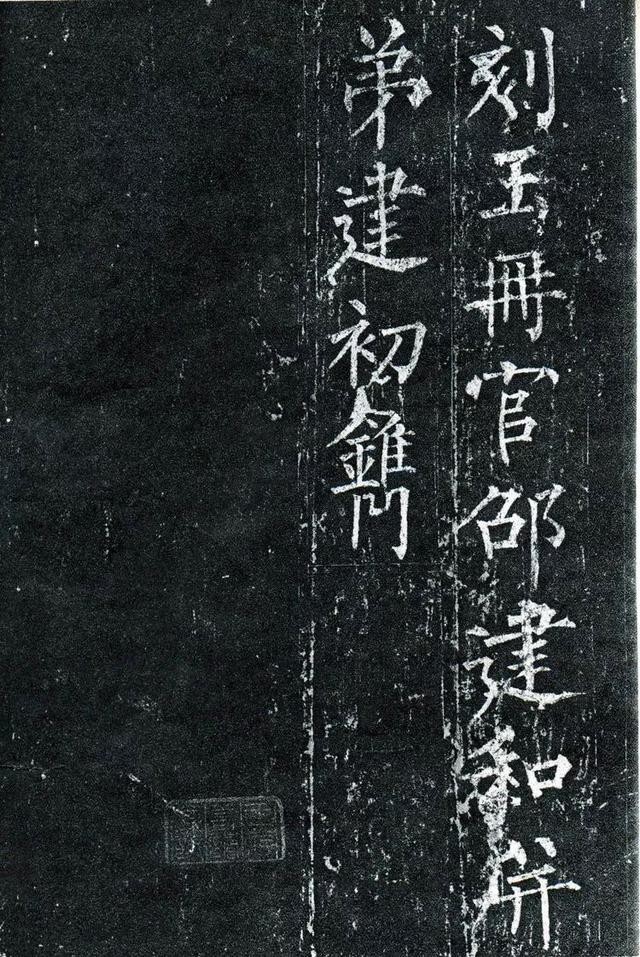 刻玉册官邵建和并
弟建初鐫